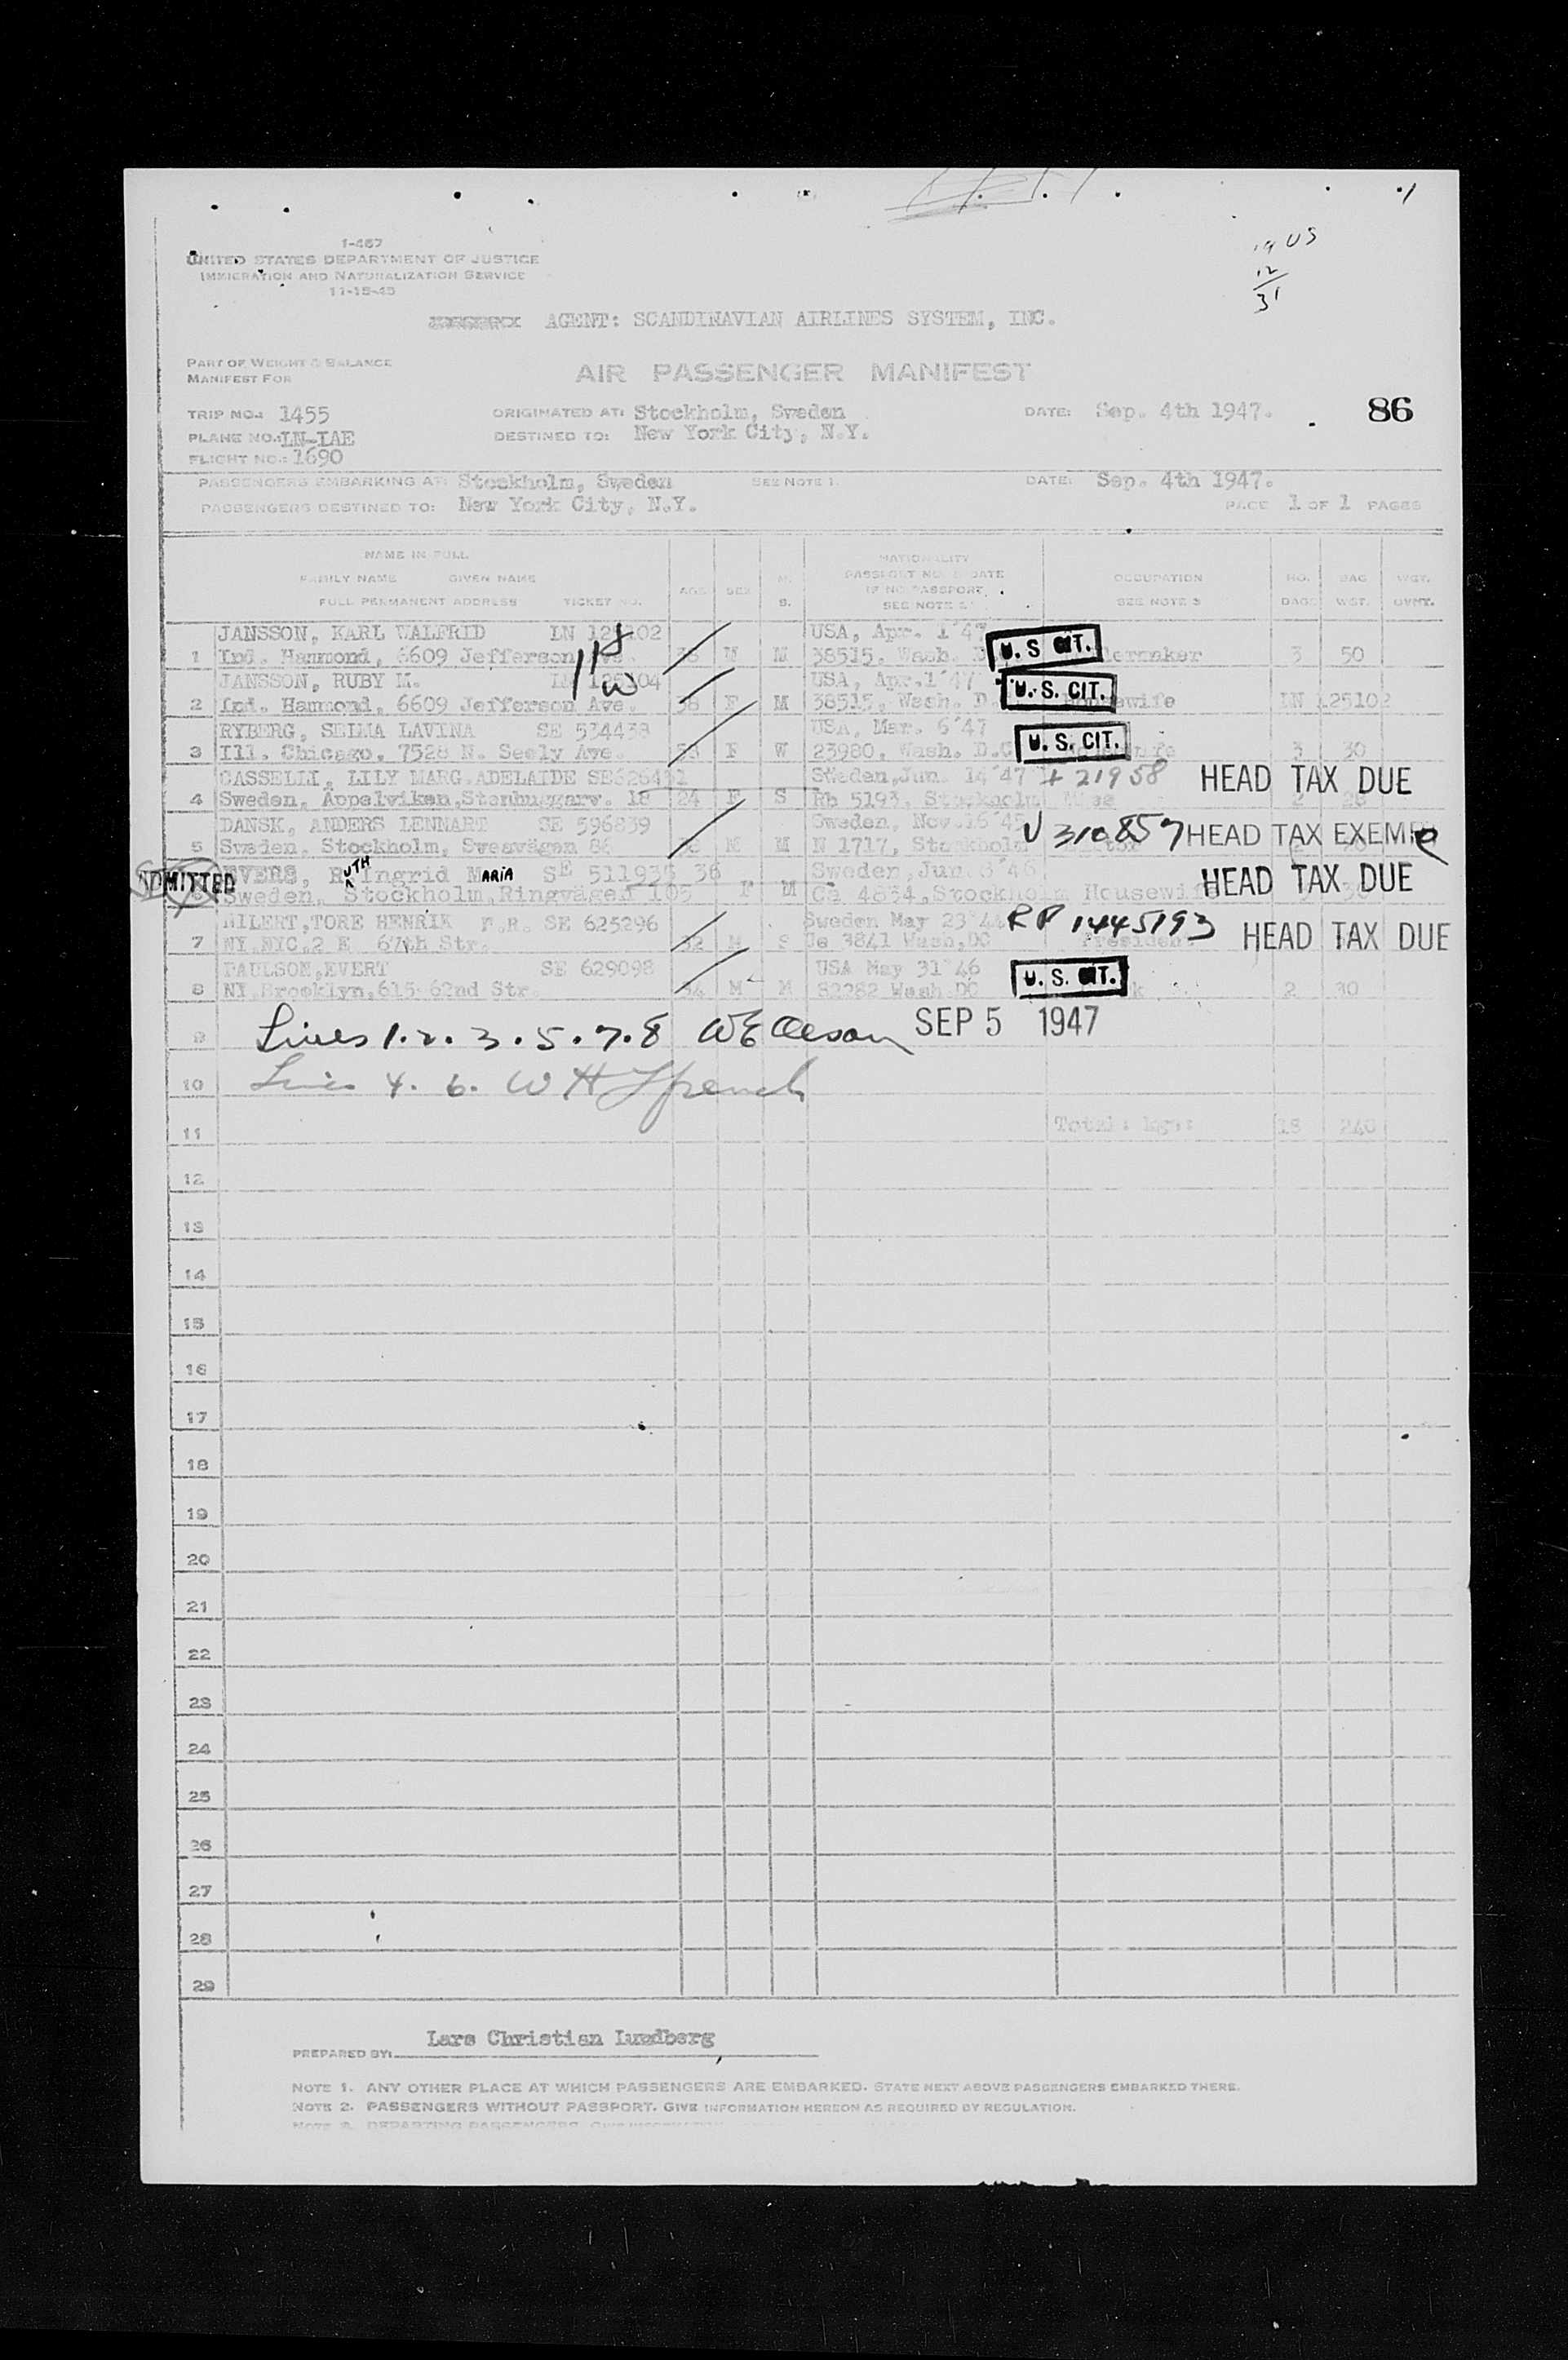 19 US
12
31
1-467
UNITED STATES DEPARTMENT OF JUSTICE
IMMIGRATION AND NATURALIZATION SERVICE
11-15-45
AGENT: SCANDINAVIAN AIRLINES SYSTEM, INC.
PART OF WEIGHT & BALANCE
MANIFEST FOR
AIR PASSENGER MANIFEST
TRIP NO.: 1455 ORIGINATED AT: Stockholm, Sweden DATE: Sep. 4th 1947. 86
PLANE NO.: LN-IAE DESTINED TO: New York City, N.Y.
FLIGHT NO.: 1690
PASSENGERS EMBARKING AT: Stockholm, Sweden SEE NOTE 1. DATE: Sep. 4th 1947.
PASSENGERS DESTINED TO: New York City, N.Y. PAGE 1 OF 1 PAGES
NAME IN FULL NATIONALITY
FAMILY NAME GIVEN NAME AGE SEX M. PASSPORT NO. & DATE OCCUPATION NO. BAG WGT.
IF NO PASSPORT
FULL PERMANENT ADDRESS TICKET NO. S. SEE NOTE 2 SEE NOTE 3 BAGS WGT. OVMT.
JANSSON, KARL WALFRID LN USA, Apr. 1'47
1 Ind. Hammond, 6609 Jefferson Ave. M M 38515, Wash. U.S CIT. 3 50
JANSSON, RUBY M. LN USA, Apr.1'47
2 Ind. Hammond, 6609 Jefferson Ave. 38 F M 38515, Wash. D. U.S. CIT. LN 125102
RYBERG, SELMA LAVINA SE 534438 USA, Mar. 6'47
3 Ill. Chicago, 7528 N. Seely Ave. F W 23980, Wash. D.C U.S. CIT. 3 30
CASSELLI, LILY MARG.ADELAIDE Sweden,Jun. 14'47 21958 HEAD TAX DUE
4 Sweden, Äppelviken, 18 24 F S Rb 5193, Stockholm
DANSK, ANDERS LENNART SE 596839 Sweden, Nov.16'45 U 310857 HEAD TAX EXEMP
5 Sweden, Stockholm, Sveavägen 86 M M N 1717, Stockholm
ADMITTED
EVERS, RUTH Ingrid MARIA SE 511935 36 Sweden, Jun. HEAD TAX DUE
6 Sweden, Stockholm,Ringvägen 105 F M Ca 4834,Stockholm Housewife
NILERT,TORE HENRIK F.R. SE 625296 Sweden May 23'44 RP 1445193 HEAD TAX DUE
7 NY,NYC,2 E 67th Str. 32 M S 3841 Wash,DC President
PAULSON,EVERT SE 629098 USA May 31'46
8 NY Brooklyn,615 62nd Str. 34 M M 82282 Wash DC U.S. CIT. 2 30
9 Lines 1.2.3.5.7.8 WE Oleson SEP 5 1947
10 Lines 4. 6. W H
11 Total: kgs: 18 240
12
13
14
15
16
17
18
19
20
21
22
23
24
25
26
27
28
29
PREPARED BY: Lars Christian Lundberg
NOTE 1. ANY OTHER PLACE AT WHICH PASSENGERS ARE EMBARKED. STATE NEXT ABOVE PASSENGERS EMBARKED THERE.
NOTE 2. PASSENGERS WITHOUT PASSPORT. GIVE INFORMATION HEREON AS REQUIRED BY REGULATION.
NOTE 3. DEPARTING PASSENGERS. GIVE INFORMATION